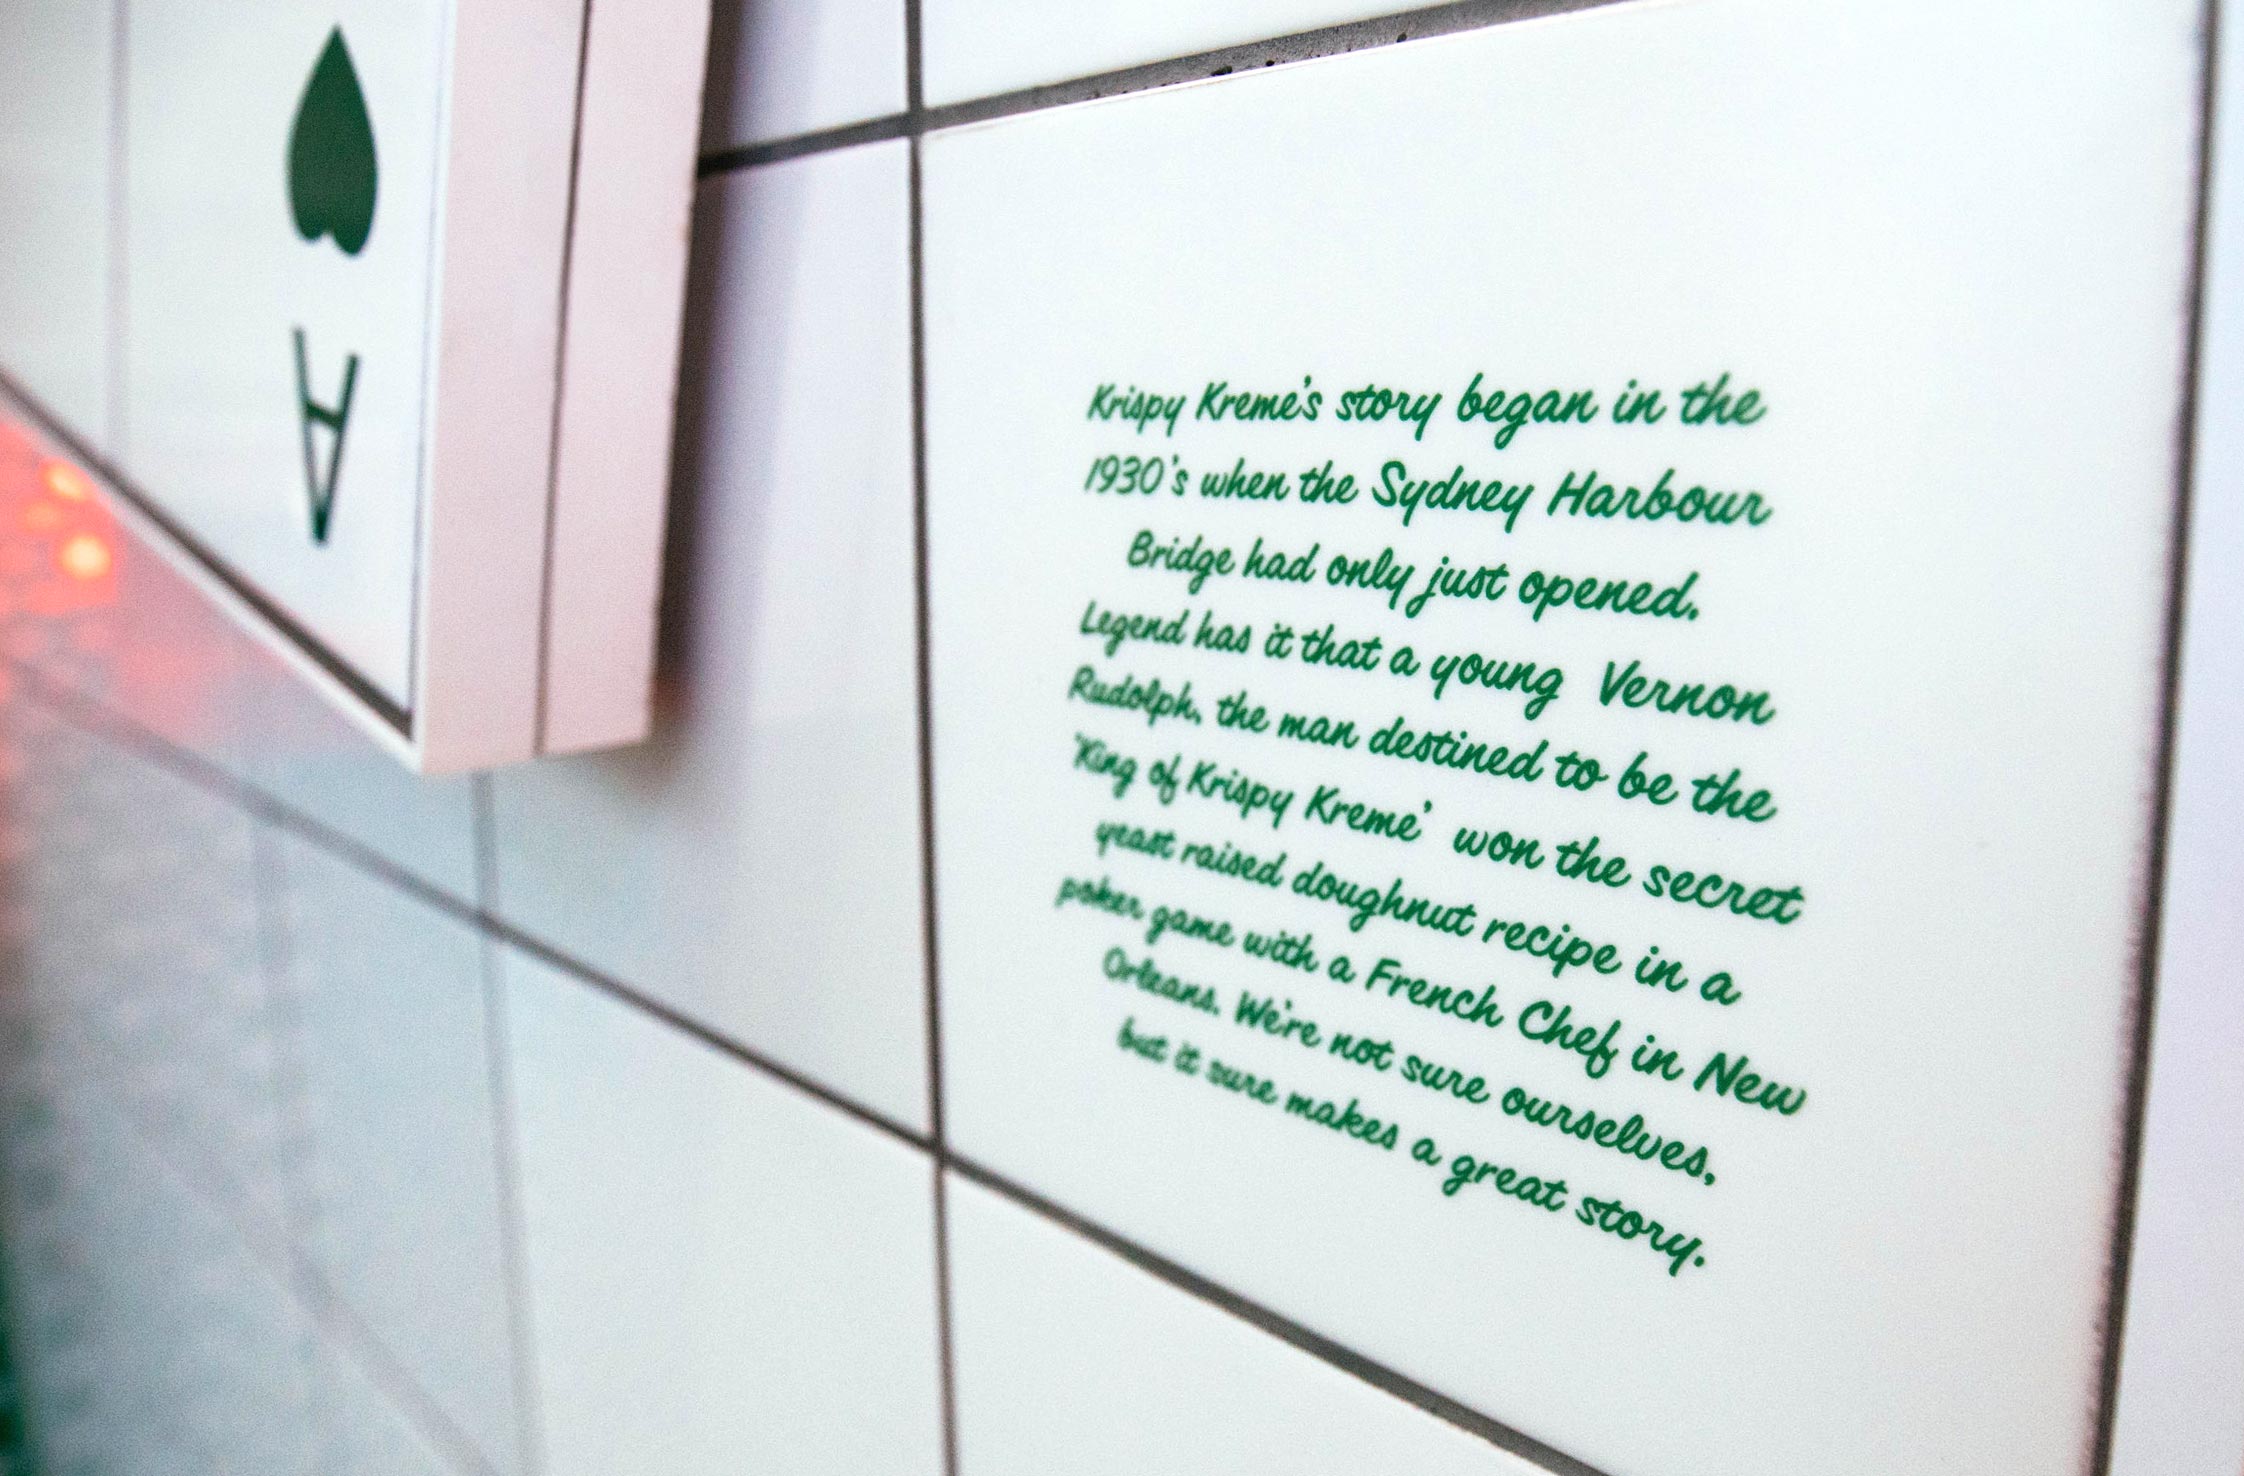 A
Krispy Kreme's story began in the
1930's when the Sydney Harbour
Bridge had only just opened.
Legend has it that a young Vernon
Rudolph, the man destined to be the
'King of Krispy Kreme' won the secret
yeast raised doughnut recipe in a
poker game with a French Chef in New
Orleans. We're not sure ourselves,
but it sure makes a great story.